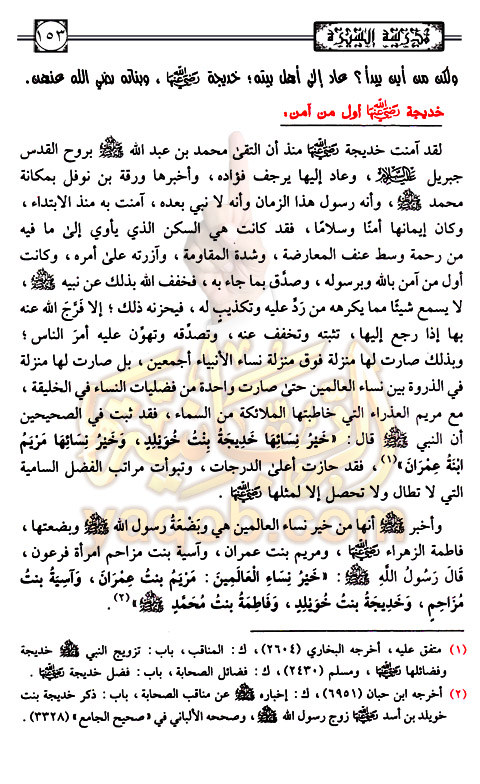 ١٥٣
مدرسة السيرة
ولكن من أين يبدأ؟ عاد إلى أهل بيته؛ خديجة رضي الله عنها ، وبناته رضي الله عنهن.
خديجة رضي الله عنها أول من آمن:
لقد آمنت خديجة رضي الله عنها منذ أن التقىٰ محمد بن عبد الله ﷺ بروح القدس
جبريل عليه السلام ، وعاد إليها يرجف فؤاده ، وأخبرها ورقة بن نوفل بمكانة
محمد ﷺ ، وأنه رسول هذا الزمان وأنه لا نبي بعده ، آمنت به منذ الابتداء ،
وكان إيمانها أمنًا وسلامًا ، فقد كانت هي السكن الذي يأوي إلىٰ ما فيه
من رحمة وسط عنف المعارضة ، وشدة المقاومة ، وآزرته علىٰ أمره ، وكانت
أول من آمن بالله وبرسوله ، وصدَّق بما جاء به ، فخفف الله بذلك عن نبيه ﷺ ،
لا يسمع شيئًا مما يكرهه من رَدٍّ عليه وتكذيبٍ له ، فيحزنه ذلك ؛ إلا فَرَّجَ الله عنه
بها إذا رجع إليها ، تثبته وتخفف عنه ، وتصدِّقه وتهوِّن عليه أمرَ الناس ؛
وبذلك صارت لها منزلة فوق منزلة نساء الأنبياء أجمعين ، بل صارت لها منزلة
في الذروة بين نساء العالمين حتىٰ صارت واحدة من فضليات النساء في الخليقة ،
مع مريم العذراء التي خاطبتها الملائكة من السماء ، فقد ثبت في الصحيحين
أن النبي ﷺ قال: «خَيْرُ نِسَائِهَا خَدِيجَةُ بِنْتُ خُوَيْلِدٍ، وَخَيْرُ نِسَائِهَا مَرْيَمُ
ابْنَةُ عِمْرَانَ»(١) ، فقد حازت أعلىٰ الدرجات ، وتبوأت مراتب الفضل السامية
التي لا تطال ولا تحصل إلا لمثلها رضي الله عنها .
وأخبر ﷺ أنها من خير نساء العالمين هي وبَضْعَةُ رسول الله ﷺ وبضعتها ،
فاطمة الزهراء رضي الله عنها ، ومريم بنت عمران ، وآسية بنت مزاحم امرأة فرعون ،
قَالَ رَسُولُ اللَّهِ ﷺ : «خَيْرُ نِسَاءِ الْعَالَمِينَ : مَرْيَمُ بنتُ عِمْرَانَ ، وَآسِيَةُ بنتُ
مُزَاحِمٍ ، وَخَدِيجَةُ بنتُ خُوَيْلِدٍ ، وَفَاطِمَةُ بنتُ مُحَمَّدٍ ﷺ»(٢).
(١) متفق عليه ، أخرجه البخاري (٢٦٠٤) ، ك: المناقب ، باب: تزويج النبي ﷺ خديجة
وفضائلها رضي الله عنها ، ومسلم (٢٤٣٠) ، ك: فضائل الصحابة ، باب: فضل خديجة رضي الله عنها .
(٢) أخرجه ابن حبان (٦٩٥١) ، ك: إخباره ﷺ عن مناقب الصحابة ، باب: ذكر خديجة بنت
خويلد بن أسد رضي الله عنها زوج رسول الله ﷺ ، وصححه الألباني في «صحيح الجامع» (٣٣٢٨) .
yaqob.com